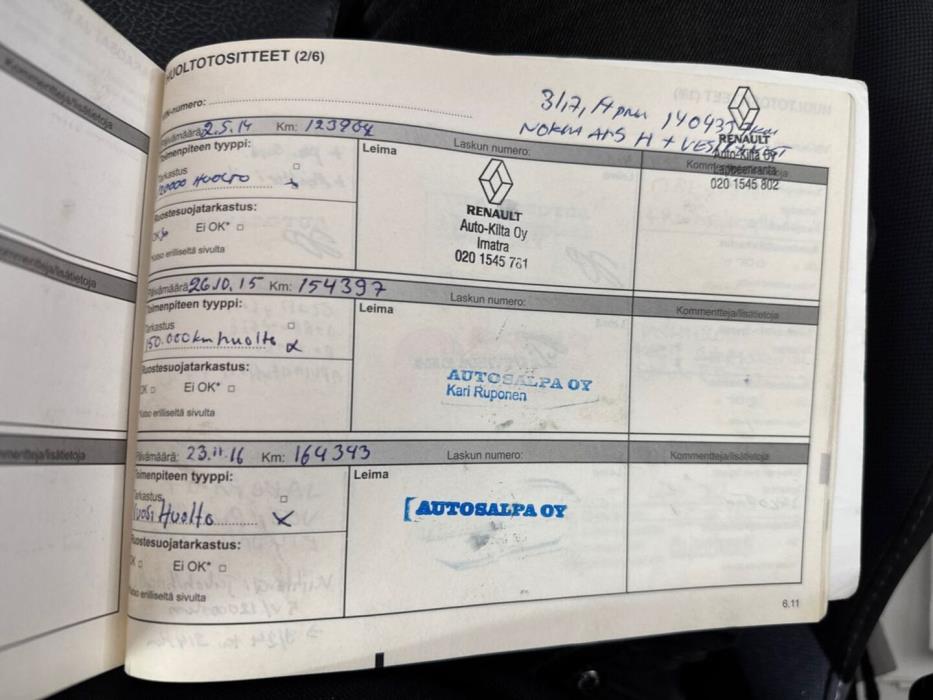 HUOLTOTOSITTEET (2/6)
-numero:
31,7, 14
NOKIA H +
RENAULT
Auto-Kilta Oy
Lappeenranta
020 1545 802
Päivämäärä: 2.5.14 Km: 123904
Laskun numero:
Toimenpiteen tyyppi:
Leima
Tarkastus
120000 HUOLTO x
Ruostesuojatarkastus:
OK Ei OK*
Katso erilliseltä sivulta
RENAULT
Auto-Kilta Oy
Imatra
020 1545 761
Päivämäärä: 26.10.15 Km: 154397
Laskun numero:
Kommentteja/lisätietoja
Toimenpiteen tyyppi:
Leima
Tarkastus
150.000km huolto x
Ruostesuojatarkastus:
OK Ei OK*
Katso erilliseltä sivulta
AUTOSALPA OY
Kari Ruponen
Päivämäärä: 23.11.16 Km: 164343
Laskun numero:
Kommentteja/lisätietoja
Toimenpiteen tyyppi:
Leima
Tarkastus
Vuosi Huolto x
Ruostesuojatarkastus:
OK Ei OK*
Katso erilliseltä sivulta
AUTOSALPA OY
6.11
Kommentteja/lisätietoja
Kommentteja/lisätietoja
Kommentteja/lisätietoja